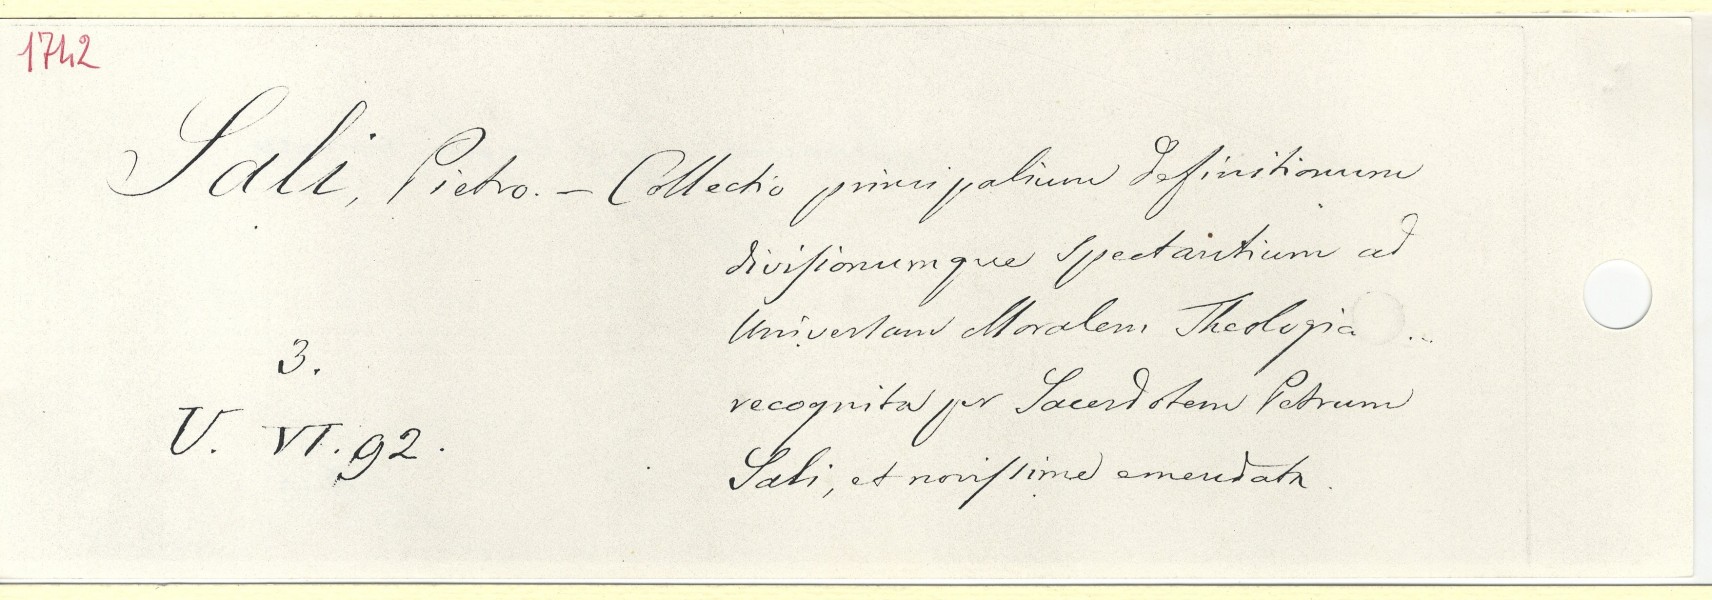 1742
Sali, Pietro. — Collectio principalium definitionum
divisionumque spectantium ad
Universam Moralem Theologia ..
recognita per Sacerdotem Petrum
Sali, et novissime emendata.
3.
U. VI. 92.